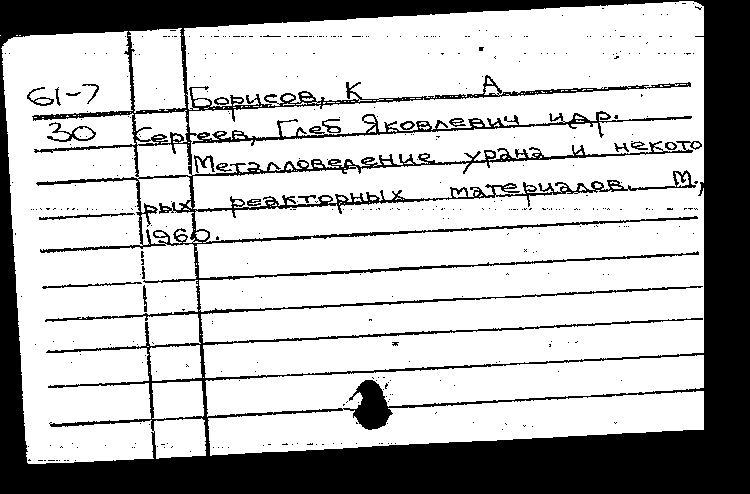 61-7 Борисов, К А
30 Сергеев, Глеб Яковлевич и др.
Металловедение урана и некото
рых реакторных материалов. М.,
1960.